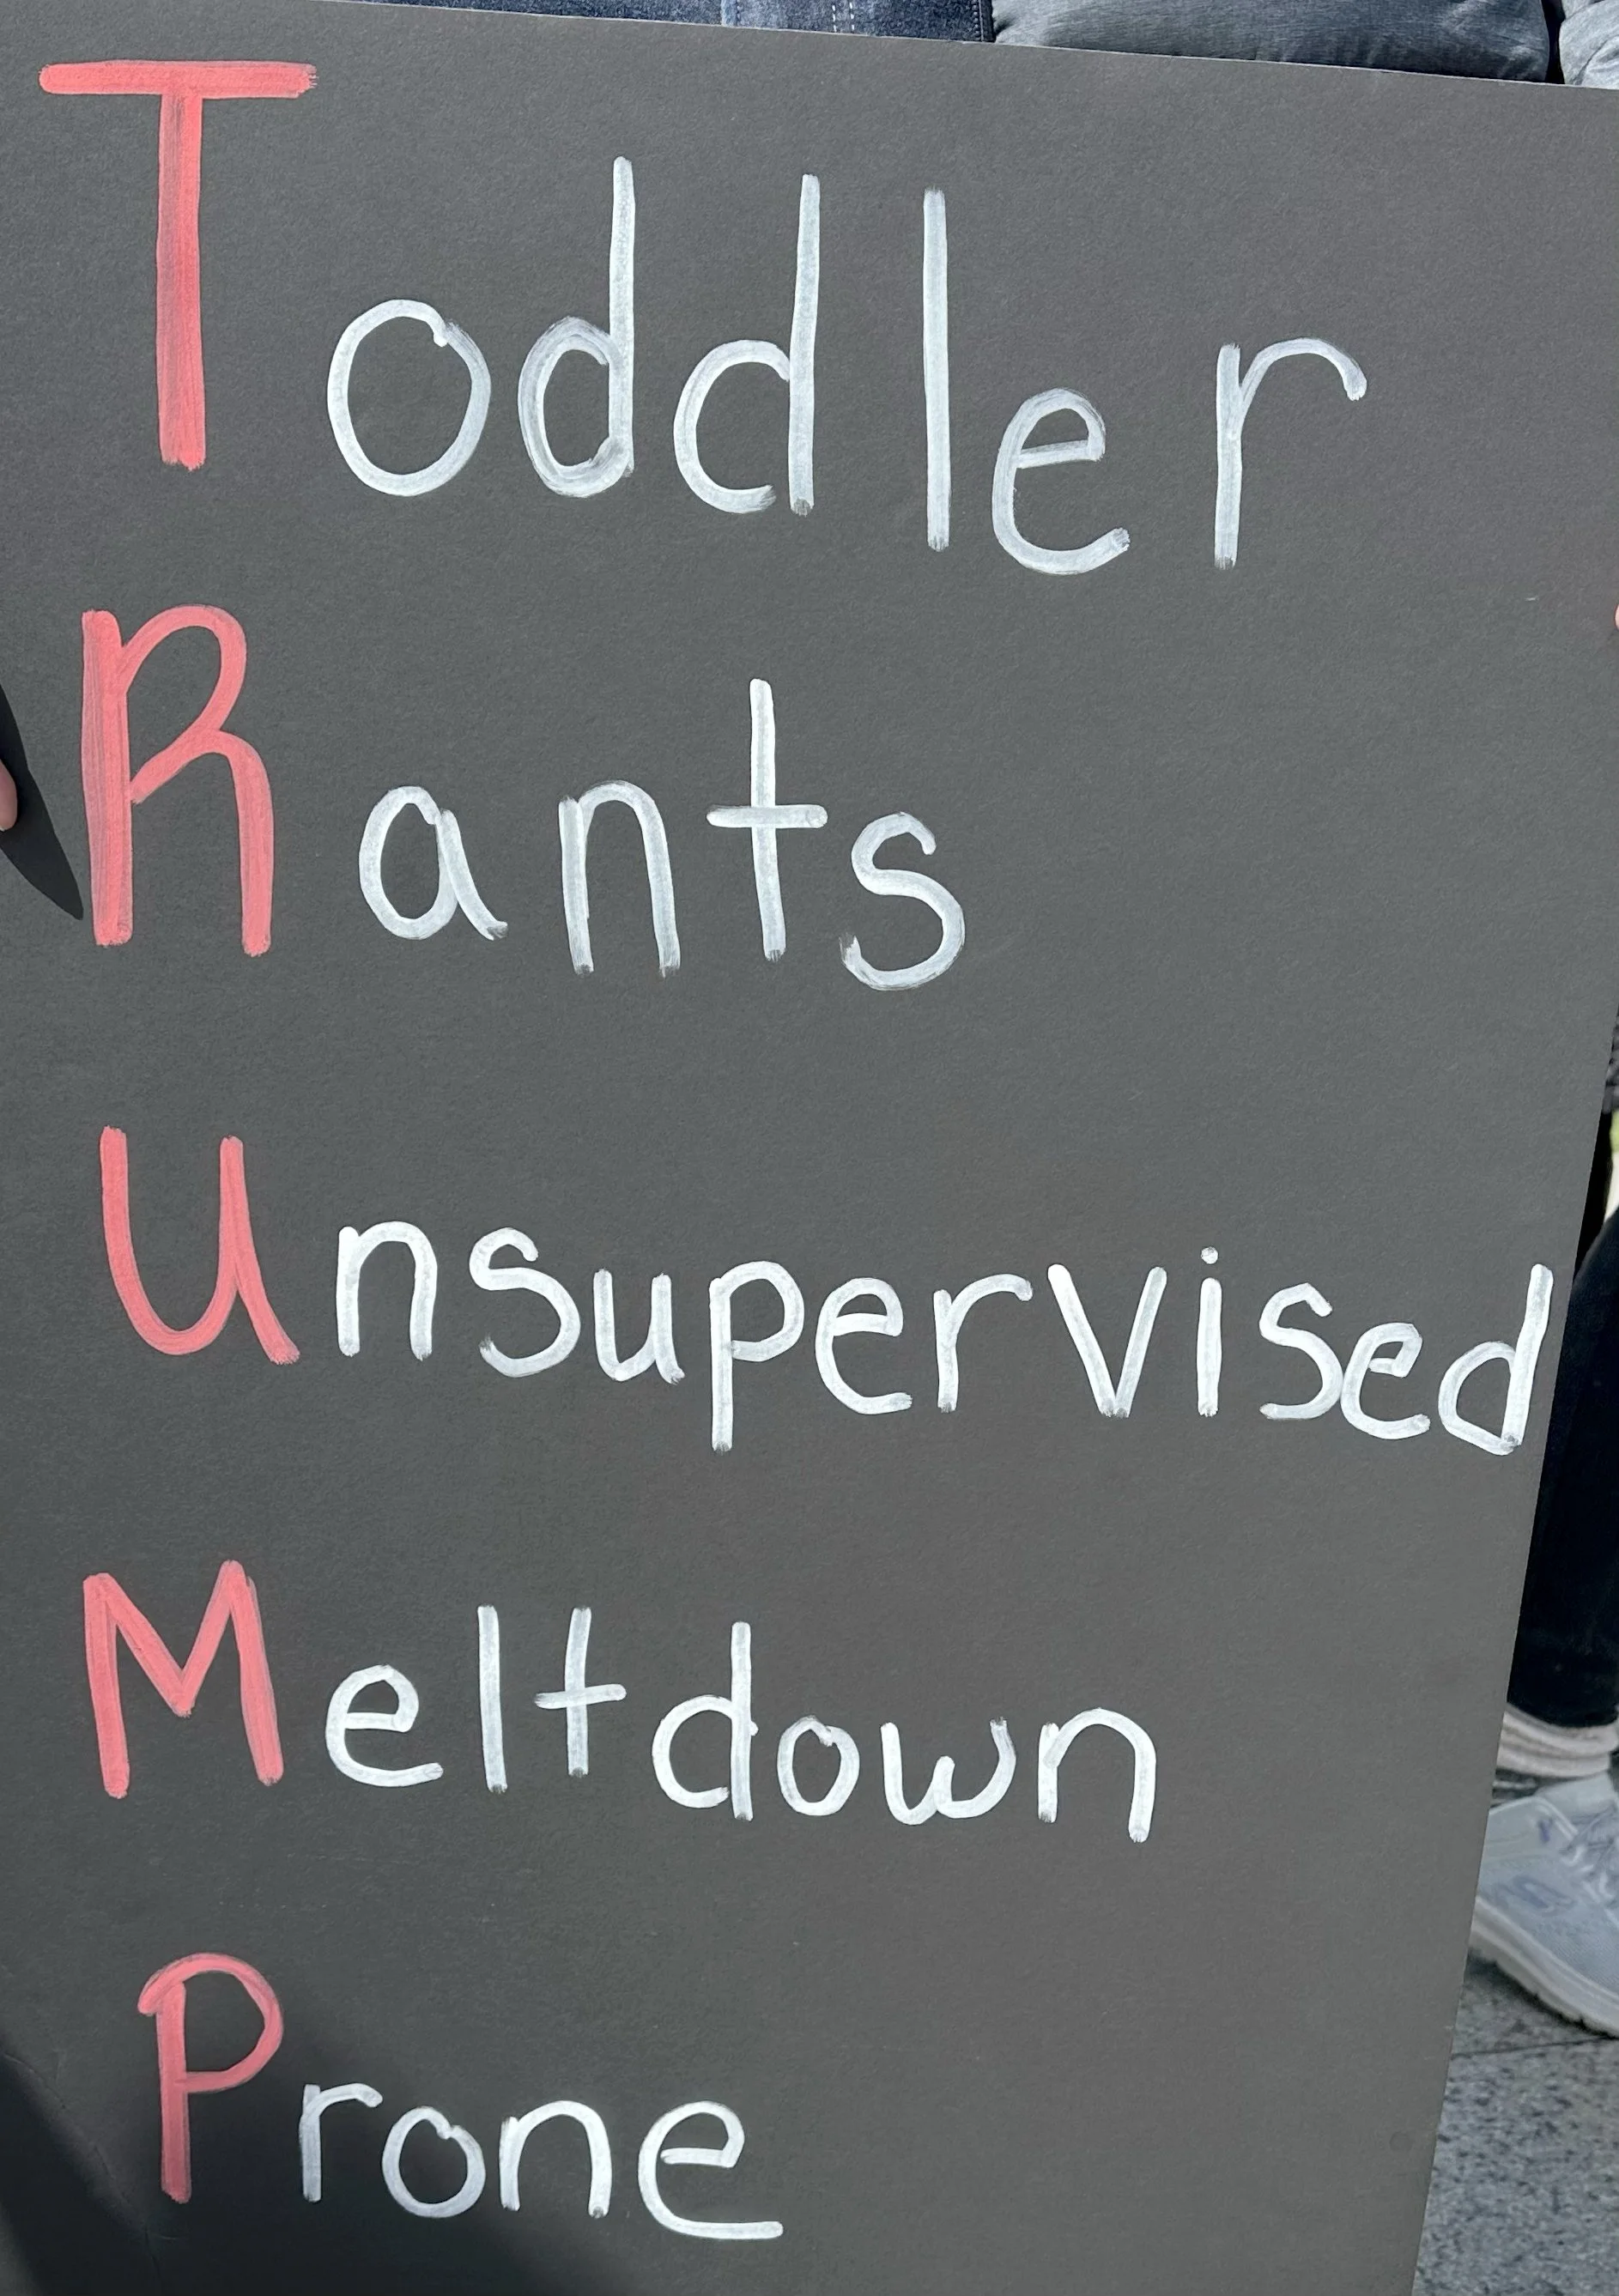 Toddler
Rants
Unsupervised
Meltdown
Prone